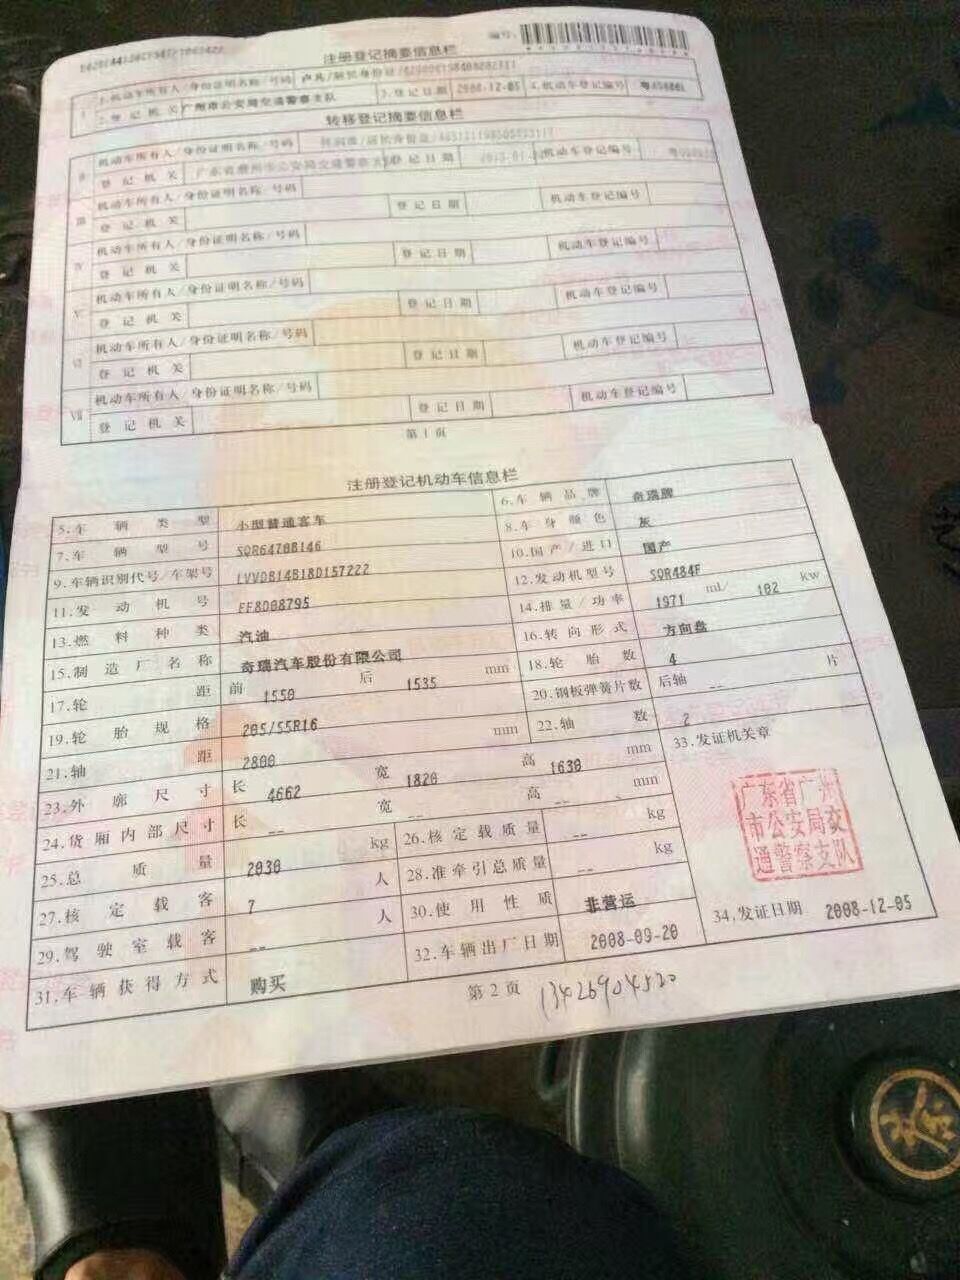 注册登记摘要信息栏
编号:
1.机动车所有人/身份证明名称/号码 卢凡/居民身份证/
2.登记机关 广州市公安局交通警察支队 3.登记日期 2008-12-05 4.机动车登记编号
转移登记摘要信息栏
Ⅱ 机动车所有人/身份证明名称/号码
登记机关 登记日期 机动车登记编号
Ⅲ 机动车所有人/身份证明名称/号码
登记机关 登记日期 机动车登记编号
Ⅳ 机动车所有人/身份证明名称/号码
登记机关 登记日期 机动车登记编号
Ⅴ 机动车所有人/身份证明名称/号码
登记机关 登记日期 机动车登记编号
Ⅵ 机动车所有人/身份证明名称/号码
登记机关 登记日期 机动车登记编号
Ⅶ 机动车所有人/身份证明名称/号码
登记机关 登记日期 机动车登记编号
第1页
注册登记机动车信息栏
5.车辆类型 小型普通客车 6.车辆品牌 奇瑞牌
7.车辆型号 SQR6470B146 8.车身颜色 灰
9.车辆识别代号/车架号 LVVDB14B18D157222 10.国产/进口 国产
11.发动机号 FF8D08795 12.发动机型号 SQR484F
13.燃料种类 汽油 14.排量/功率 1971 ml/ 102 kw
15.制造厂名称 奇瑞汽车股份有限公司 16.转向形式 方向盘
17.轮距 前 1550 后 1535 mm 18.轮胎数 4
19.轮胎规格 205/55R16 20.钢板弹簧片数 后轴 -- 片
21.轴距 2800 mm 22.轴数 2
23.外廓尺寸 长 4662 宽 1820 高 1630 mm 33.发证机关章
24.货厢内部尺寸 长 -- 宽 -- 高 -- mm
25.总质量 2030 kg 26.核定载质量 -- kg
27.核定载客 7 人 28.准牵引总质量 -- kg
29.驾驶室载客 -- 人 30.使用性质 非营运
31.车辆获得方式 购买 32.车辆出厂日期 2008-09-20
广东省广州
市公安局交
通警察支队
34.发证日期 2008-12-05
第2页
13426904520